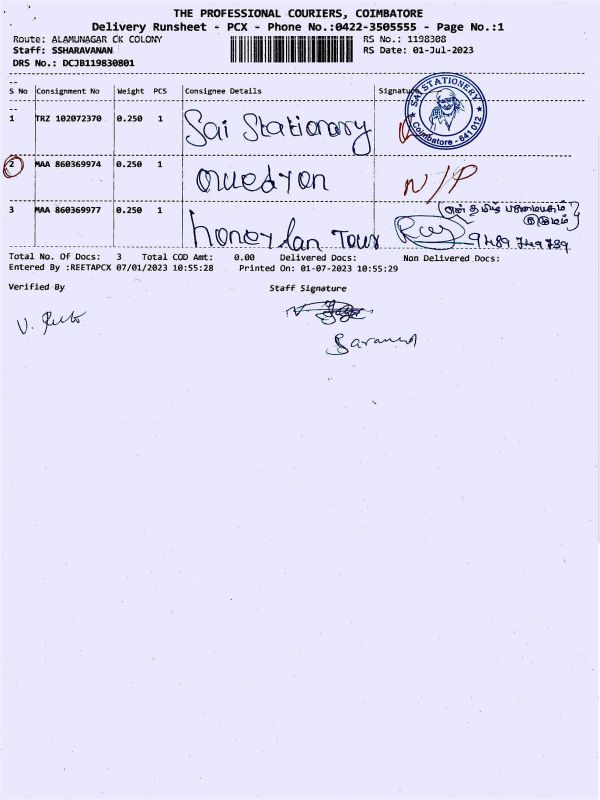 THE PROFESSIONAL COURIERS, COIMBATORE
Delivery Runsheet - PCX - Phone No.:0422-3505555 - Page No.:1
Route: ALAMUNAGAR CK COLONY
RS No.: 1198308
Staff: SSHARAVANAN
RS Date: 01-Jul-2023
DRS No.: DCJB119830801
S No Consignment No Weight PCS Consignee Details Signature
SAI STATIONERY
Coimbatore - 641 012
1 TRZ 102072370 0.250 1 Sai Stationary
2 MAA 860369974 0.250 1 N/P
3 MAA 860369977 0.250 1 honey Tour 9489 749 739
Total No. Of Docs: 3 Total COD Amt: 0.00 Delivered Docs: Non Delivered Docs:
Entered By :REETAPCX 07/01/2023 10:55:28 Printed On: 01-07-2023 10:55:29
Verified By Staff Signature